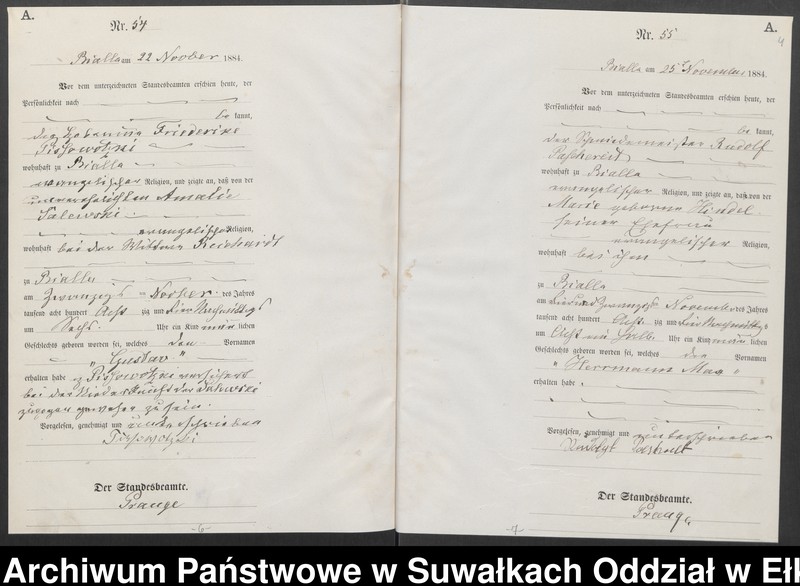 A.
Nr. 54
Bialla am 22 Novber 1884.
Vor dem unterzeichneten Standesbeamten erschien heute, der
Persönlichkeit nach
be kannt,
die Hebamme Friederike
wohnhaft zu Bialla
evangelischer Religion, und zeigte an, daß von der
unverehelichten Amalie
evangelischer Religion,
wohnhaft bei der Wittwe Reinhardt
zu Bialla
am Zwanzigs Novber des Jahres
tausend acht hundert Acht zig und Vier Nachmittags
um Sechs Uhr ein Kind männ lichen
Geschlechts geboren worden sei, welches den Vornamen
„Gustav"
erhalten habe
bei der Niederkunft der
zugegen gewesen zu sein.
Vorgelesen, genehmigt und unterschrieben
Der Standesbeamte.
Prange
-6-
A.
4
Nr. 55
Bialla am 25 November 1884.
Vor dem unterzeichneten Standesbeamten erschien heute, der
Persönlichkeit nach
be kannt,
der Schmiedemeister Rudolf
wohnhaft zu Bialla
evangelischer Religion, und zeigte an, daß von der
Marie geborene
seiner Ehefrau
evangelischer Religion,
wohnhaft bei ihm
zu Bialla
am Vierundzwanzigs November des Jahres
tausend acht hundert Acht zig und Vier Nachmittags
um Acht ein halb Uhr ein Kind männ lichen
Geschlechts geboren worden sei, welches den Vornamen
„Herrmann Max"
erhalten habe
Vorgelesen, genehmigt und unterschrieben
Der Standesbeamte.
Prange
-7-
Archiwum Państwowe w Suwałkach Oddział w Eł